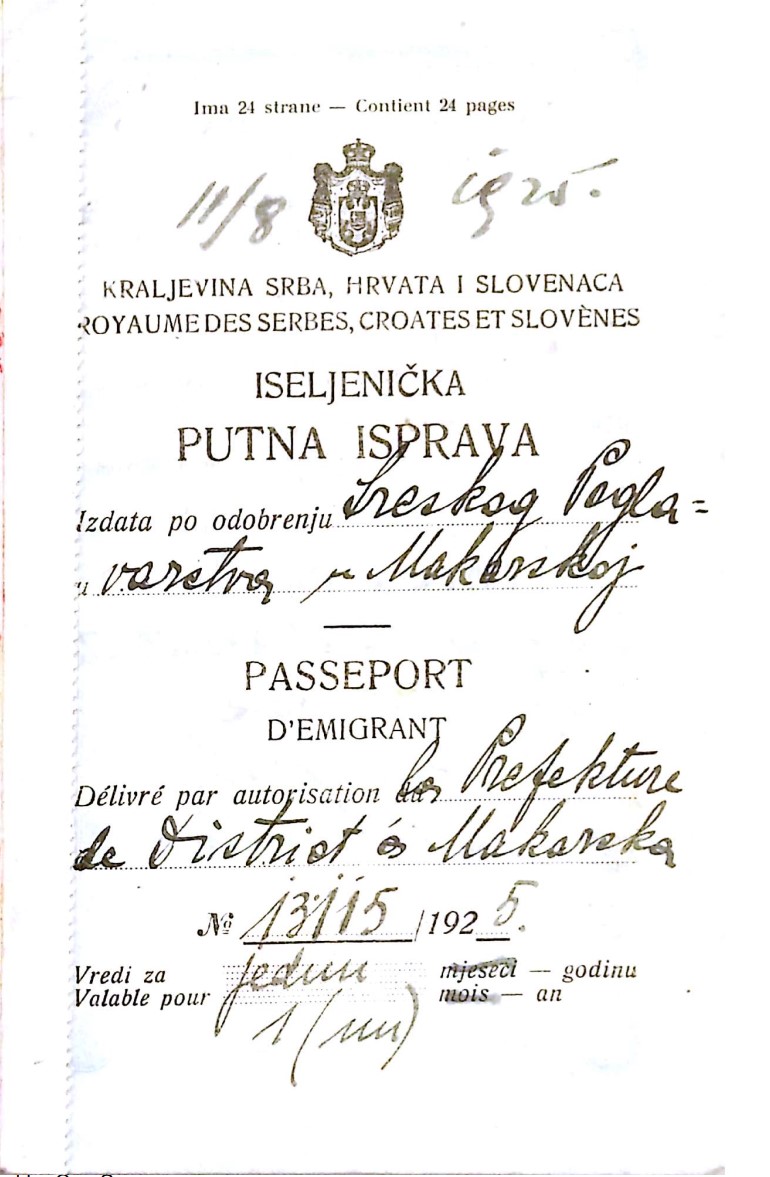 Ima 24 strane — Contient 24 pages
11/8 1925.
KRALJEVINA SRBA, HRVATA I SLOVENACA
ROYAUME DES SERBES, CROATES ET SLOVÈNES
ISELJENIČKA
PUTNA ISPRAVA
Izdata po odobrenju Sreskog Pogla=
u varstva u Makarskoj
PASSEPORT
D'EMIGRANT
Délivré par autorisation la Prefekture
de District à Makarska
№ 13115/1925.
Vredi za jednu mjeseci — godinu
Valable pour mois — an
1 (un)